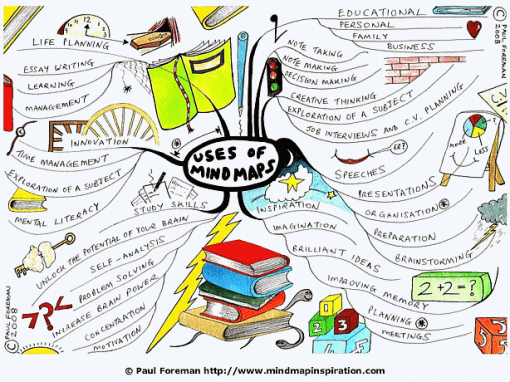 USES OF
MIND MAPS
LIFE PLANNING
ESSAY WRITING
LEARNING
MANAGEMENT
INNOVATION
TIME MANAGEMENT
EXPLORATION OF A SUBJECT
MENTAL LITERACY
STUDY SKILLS
UNLOCK THE POTENTIAL OF YOUR BRAIN
SELF-ANALYSIS
PROBLEM SOLVING
INCREASE BRAIN POWER
CONCENTRATION
MOTIVATION
© PAUL FOREMAN 2008
EDUCATIONAL
PERSONAL
FAMILY
BUSINESS
© PAUL FOREMAN 2008
NOTE TAKING
NOTE MAKING
DECISION MAKING
CREATIVE THINKING
EXPLORATION OF A SUBJECT
JOB INTERVIEWS AND C.V. PLANNING
SPEECHES
MORE
LESS
PRESENTATIONS
ORGANISATION
PREPARATION
BRAINSTORMING
INSPIRATION
IMAGINATION
BRILLIANT IDEAS
IMPROVING MEMORY
PLANNING
MEETINGS
2+2=?
1
2 3
© Paul Foreman http://www.mindmapinspiration.com